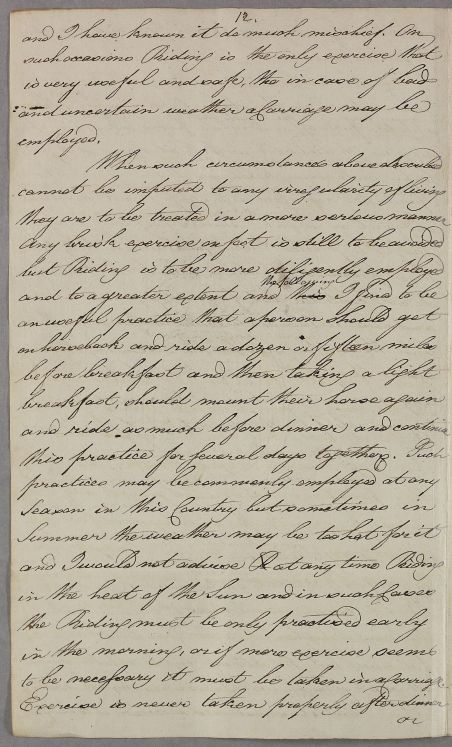 12.
and I have known it do much mischief. On
such occasions Riding is the only exercise that
is very useful and safe, tho in case of bad
and uncertain weather a Carriage may be
employed.
When such circumstances above described
cannot be imputed to any irregularity of living
they are to be treated in a more serious manner
Any brisk exercise on foot is still to be avoided
but Riding is to be more diligently employed
the following
and to a greater extent and this I find to be
an useful practice that a person should get
on horseback and ride a dozen or fifteen miles
before breakfast and then taking a light
breakfast, should mount their horse again
and ride as much before dinner and continue
this practice for several days together. Such
practices may be commonly employed at any
Season in this Country but sometimes in
Summer the weather may be too hot for it
and I would not advise at any time Riding
in the heat of the Sun and in such Cases
the Riding must be only practised early
in the morning, or if more exercise seems
to be necessary it must be taken in a Carriage
Exercise is never taken properly after dinner
or